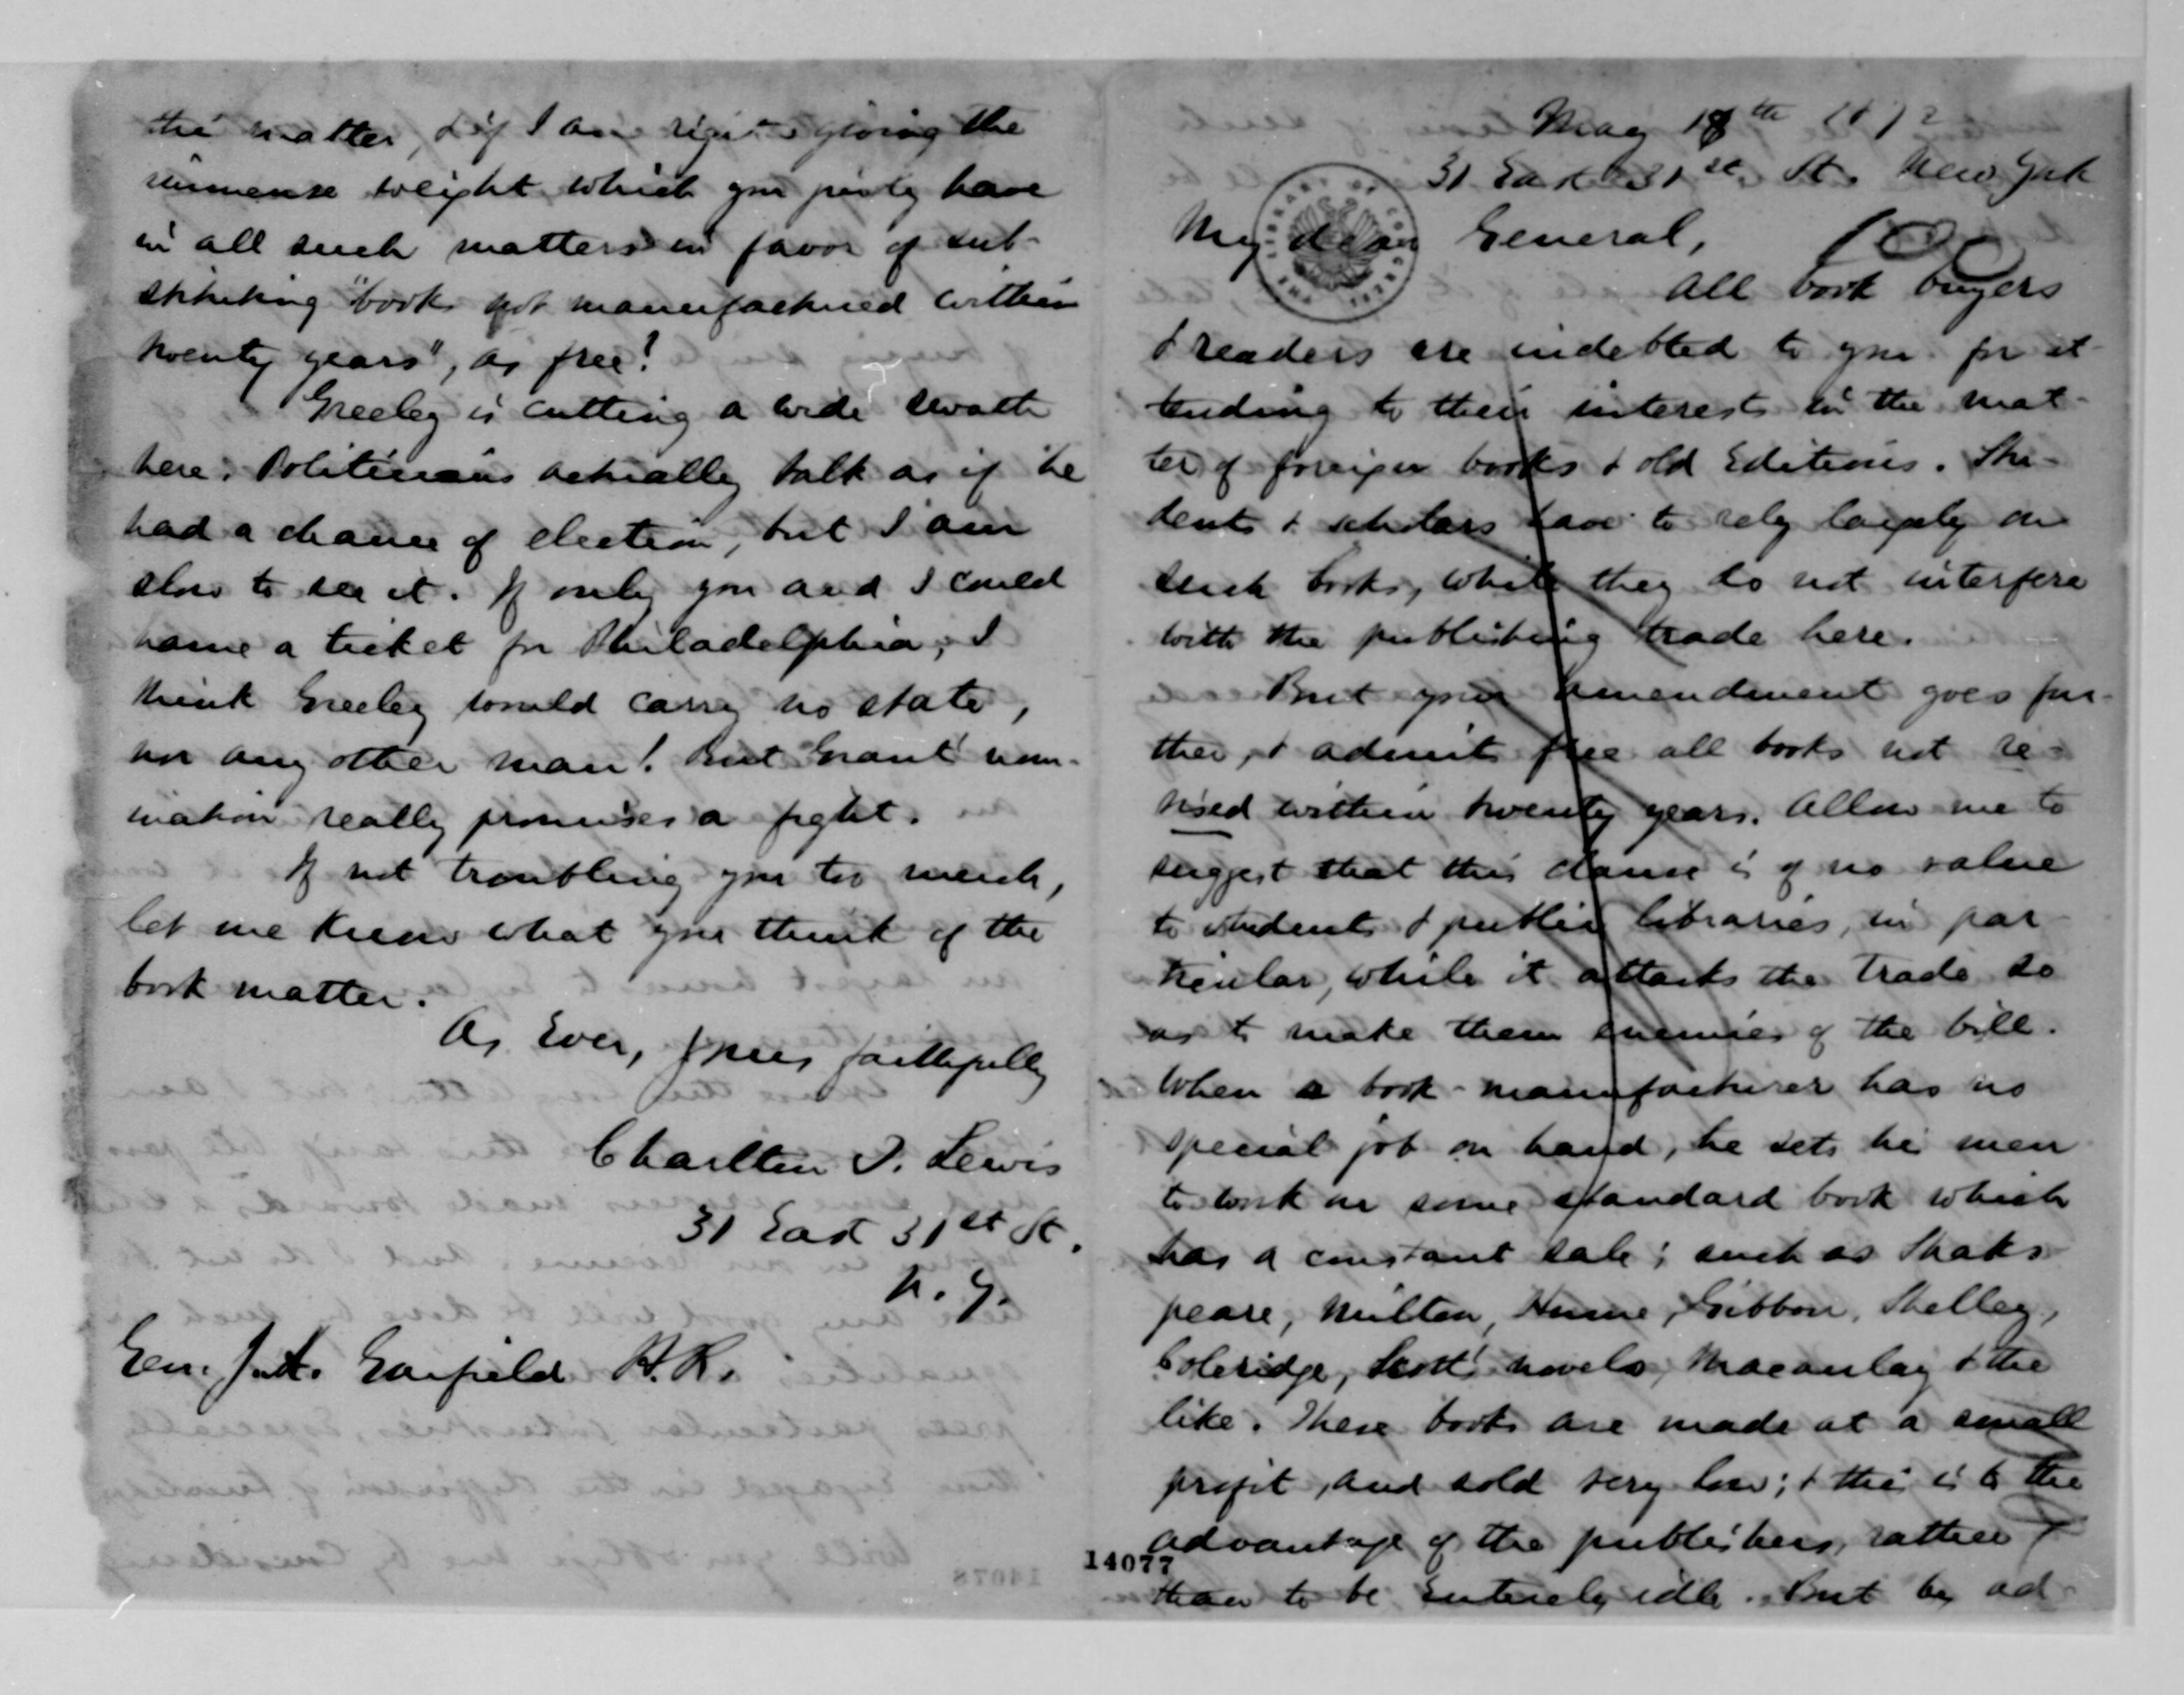 May 18th 1872
31 East 31st St. New York
My dear General,
All book buyers
& readers are indebted to you for at-
tending to their interests in the mat-
ter of foreign books & old Editions. Stu-
dents & scholars have to rely largely on
such books, while they do not interfere
with the publishing trade here.
But your amendment goes fur-
ther, & admits free all books not re-
vised within twenty years. Allow me to
suggest that this clause is of no value
to students & public libraries, in par-
ticular, while it attacks the trade so
as to make them enemies of the bill.
When a book-manufacturer has no
special job on hand, he sets his men
to work on some standard book which
has a constant sale; such as Shaks-
peare, Milton, Hume, Gibbon, Shelley,
Coleridge, Scott's novels, Macaulay & the
like. These books are made at a small
profit, and sold very low; & this is to the
advantage of the publishers, rather
than to be entirely idle. But by ad-
14077
the matter, & if I am right giving the
immense weight which you justly have
in all such matters in favor of sub-
stituting "books not manufactured within
twenty years", as free?
Greeley is cutting a wide swath
here. Politicians actually talk as if he
had a chance of election, but I am
slow to see it. If only you and I could
name a ticket for Philadelphia, I
think Greeley would carry no state,
nor any other man! But Grant's nom-
ination really promises a fight.
If not troubling you too much,
let me know what you think of the
book matter.
As Ever, Yours faithfully
Charlton T. Lewis
31 East 31st St.
N. Y.
Gen. J. A. Garfield H. R.